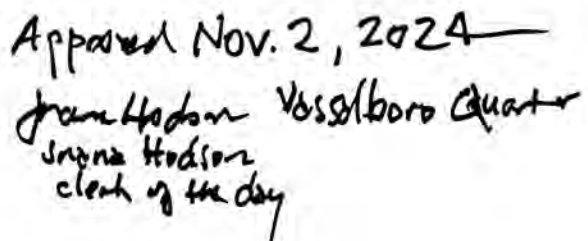 Approved Nov. 2, 2024
Hodson Vassalboro Quarter
Hodson
clerk of the day